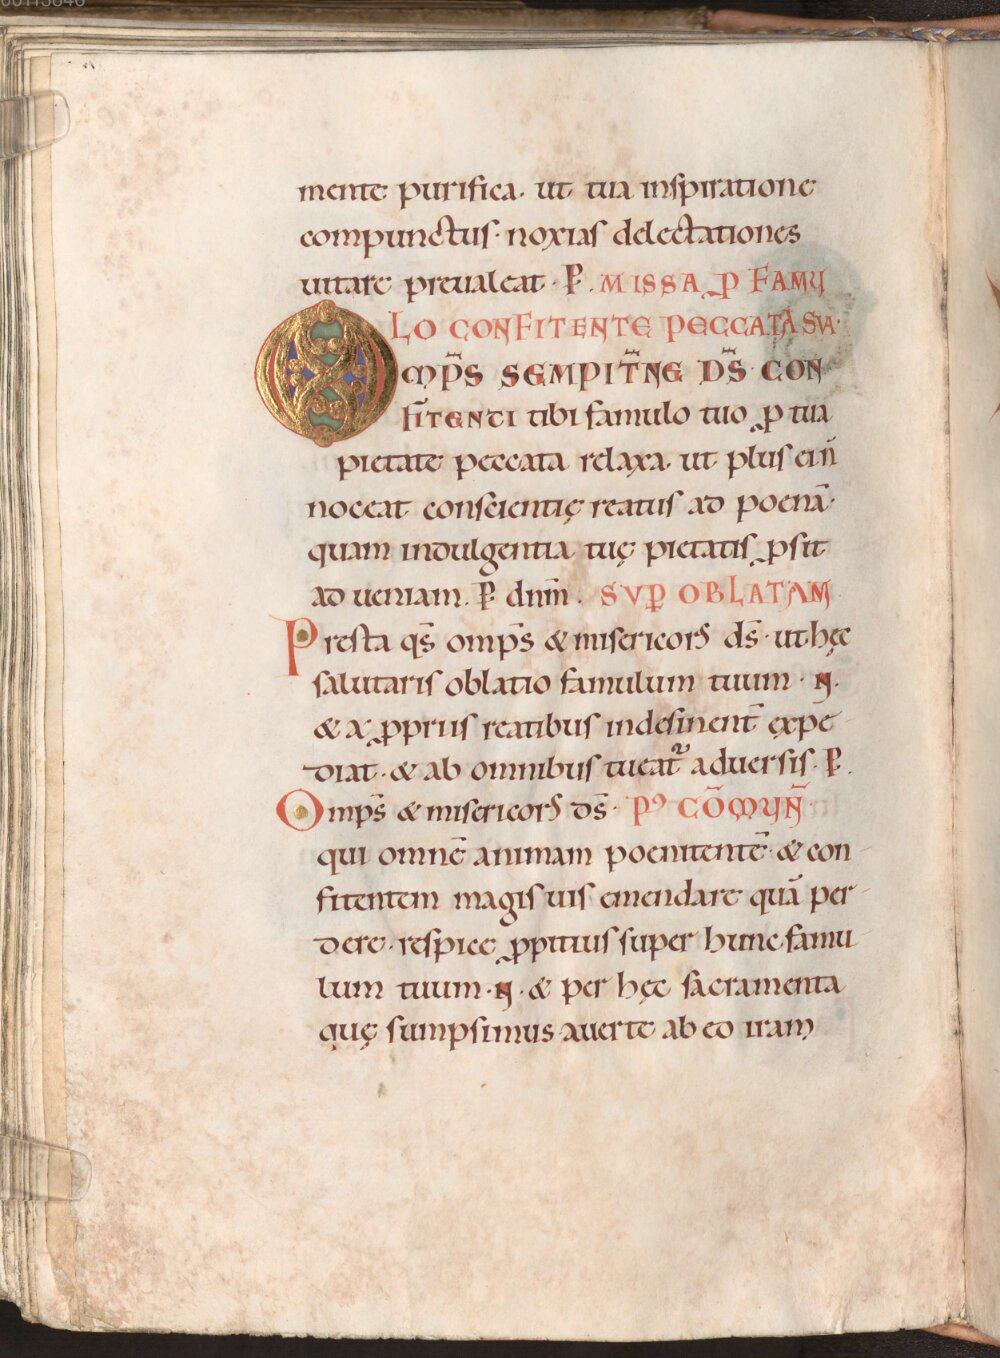 mente purifica. ut tua inspiratione
compunctus. noxias delectationes
uitare preualeat. P. MISSA P FAMU
LO CONFITENTE PECCATA SVA.
OMP̄S SEMPIT̄NE D̄S. CON
FITENTI tibi famulo tuo p tua
pietate peccata relaxa. ut plus ein̄
noceat conscientię reatus ad poenā.
quam indulgentia tuę pietatis psit
ad ueniam. P. dnm̄. SVP OBLATAM
Presta qs̄ omp̄s & misericors ds̄. ut hęc
salutaris oblatio famulum tuum. N.
& a pprius reatibus indesinent̄ expe
diat. & ab omnibus tueat̄ aduersis. P.
Omp̄s & misericors ds̄. Pꝰ CŌMUN̄
qui omnē animam poenitentē. & con
fitentem magis uis emendare quā per
dere. respice ppitius super hunc famu
lum tuum. N. & per hęc sacramenta
quę sumpsimus auerte ab eo iram